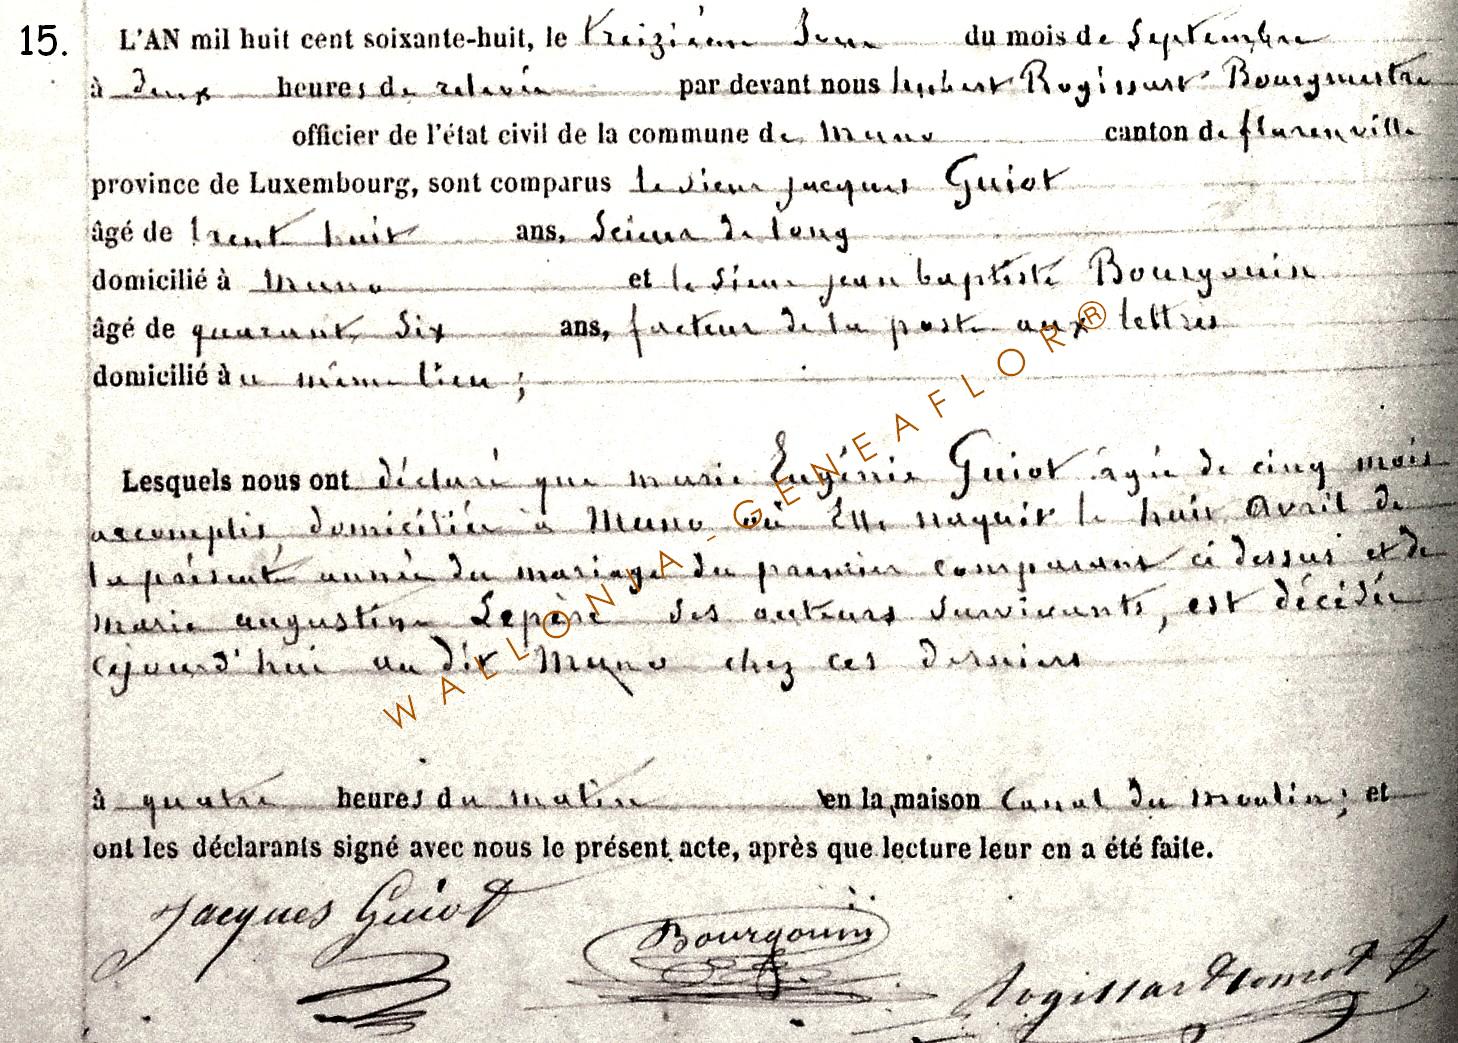 15. L'AN mil huit cent soixante-huit, le treizième Jour du mois de Septembre
à deux heures de relevée par devant nous Lambert Rogissart Bourgmestre
officier de l'état civil de la commune de Muno canton de florenville
province de Luxembourg, sont comparus le sieur jacques Guiot
âgé de trent huit ans, Scieur de long
domicilié à Muno et le sieur jean baptiste Bourgouin
âgé de quarant six ans, facteur de la poste aux lettres
domicilié à u même lieu ;
Lesquels nous ont déclaré que marie Eugénie Guiot âgée de cinq mois
accomplis, domiciliée à Muno où Elle naquit le huit Avril de
la présente année du mariage du premier comparant ci dessus et de
marie augustine Lepère ses auteurs survivants, est décédée
cejourd'hui au dit Muno chez ces derniers
à quatre heures du matin en la maison Canal du moulin ; et
ont les déclarants signé avec nous le présent acte, après que lecture leur en a été faite.
Jacques Guiot
Bourgouin
Rogissart
WALLONIA-GENEAFLOR®